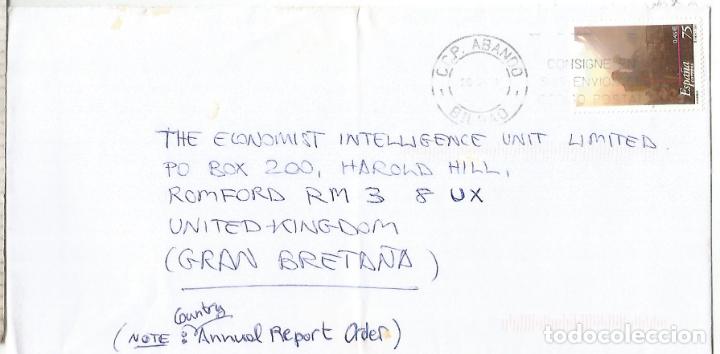 C.C.P. ABANDO
BILBAO
CONSIGNE EN
SUS ENVIOS
POSTAL
75
0,45€
España
Correos
THE ECONOMIST INTELLIGENCE UNIT LIMITED.
PO BOX 200, HAROLD HILL,
ROMFORD RM 3 8 UX
UNITED KINGDOM
(GRAN BRETAÑA)
Country
(NOTE: Annual Report Order)
todocoleccion